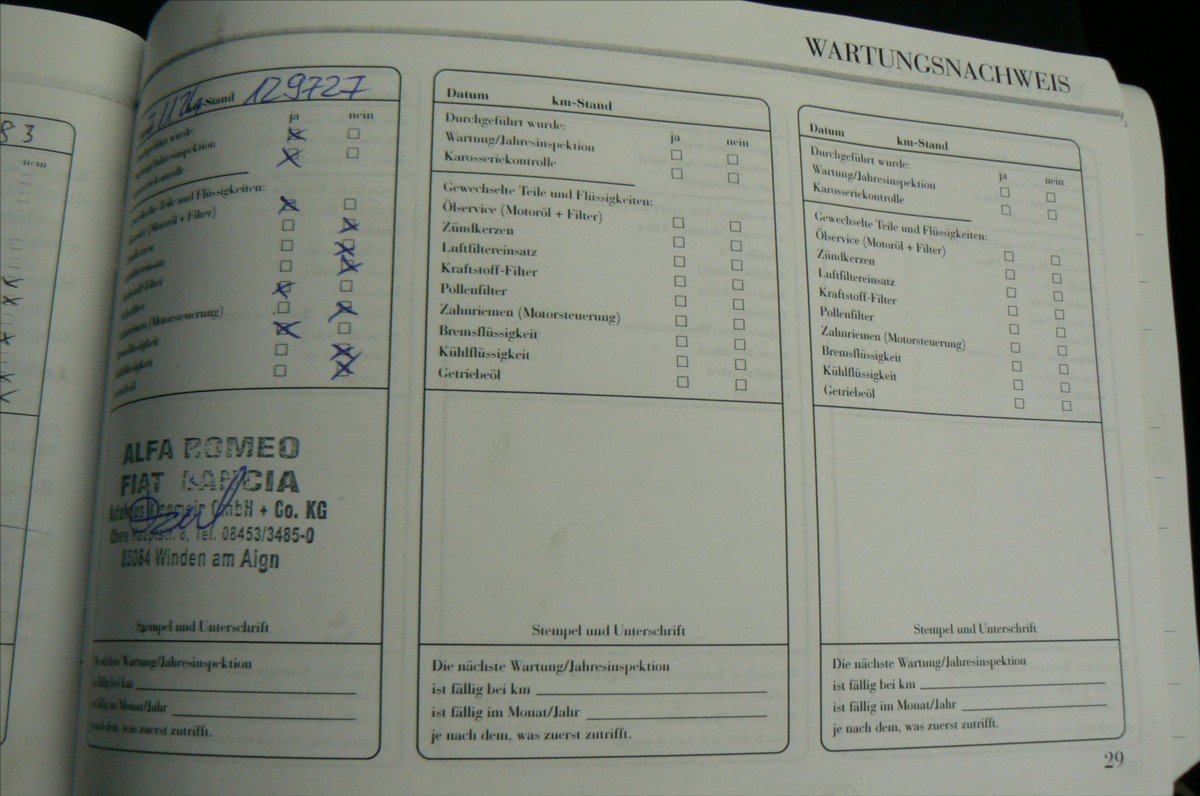 WARTUNGSNACHWEIS
83
nein
km-Stand 129727
ja nein
Durchgeführt wurde:
Wartung/Jahresinspektion
Karosseriekontrolle
Gewechselte Teile und Flüssigkeiten:
(Motoröl + Filter)
Zahnriemen (Motorsteuerung)
ALFA ROMEO
FIAT LANCIA
GmbH + Co. KG
Obere Hauptstr. 8, Tel. 08453/3485-0
85084 Winden am Aign
Stempel und Unterschrift
Die nächste Wartung/Jahresinspektion
ist fällig bei km
ist fällig im Monat/Jahr
je nach dem, was zuerst zutrifft.
Datum km-Stand
Durchgeführt wurde: ja nein
Wartung/Jahresinspektion
Karosseriekontrolle
Gewechselte Teile und Flüssigkeiten:
Ölservice (Motoröl + Filter)
Zündkerzen
Luftfiltereinsatz
Kraftstoff-Filter
Pollenfilter
Zahnriemen (Motorsteuerung)
Bremsflüssigkeit
Kühlflüssigkeit
Getriebeöl
Stempel und Unterschrift
Die nächste Wartung/Jahresinspektion
ist fällig bei km
ist fällig im Monat/Jahr
je nach dem, was zuerst zutrifft.
Datum km-Stand
Durchgeführt wurde: ja nein
Wartung/Jahresinspektion
Karosseriekontrolle
Gewechselte Teile und Flüssigkeiten:
Ölservice (Motoröl + Filter)
Zündkerzen
Luftfiltereinsatz
Kraftstoff-Filter
Pollenfilter
Zahnriemen (Motorsteuerung)
Bremsflüssigkeit
Kühlflüssigkeit
Getriebeöl
Stempel und Unterschrift
Die nächste Wartung/Jahresinspektion
ist fällig bei km
ist fällig im Monat/Jahr
je nach dem, was zuerst zutrifft.
29